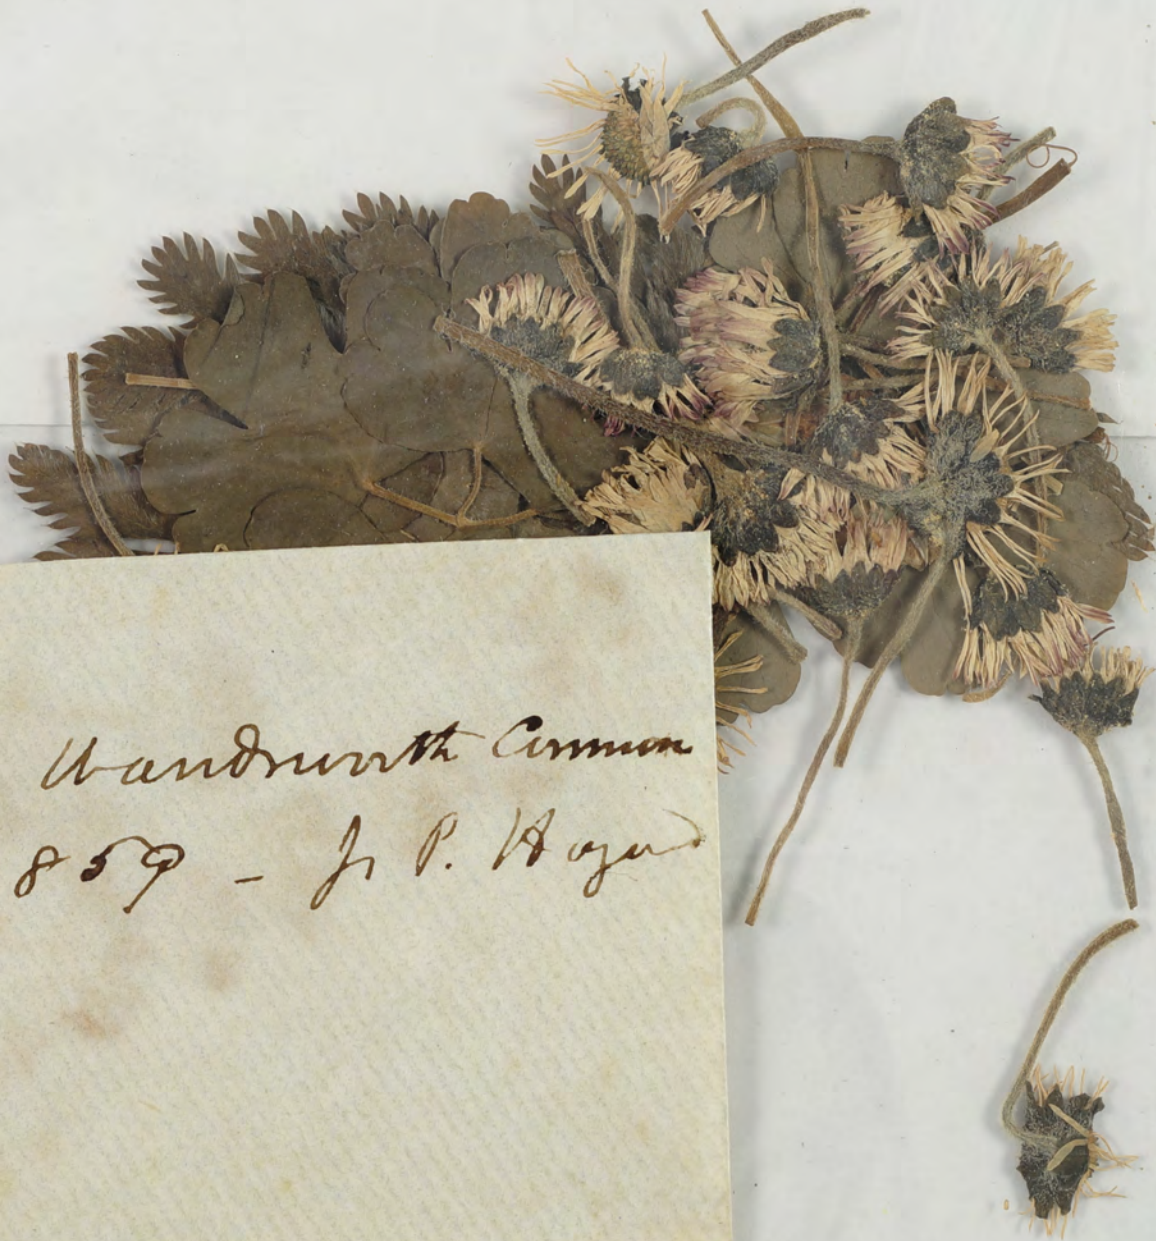 Wandsworth Common
859 - J. P. Hazard